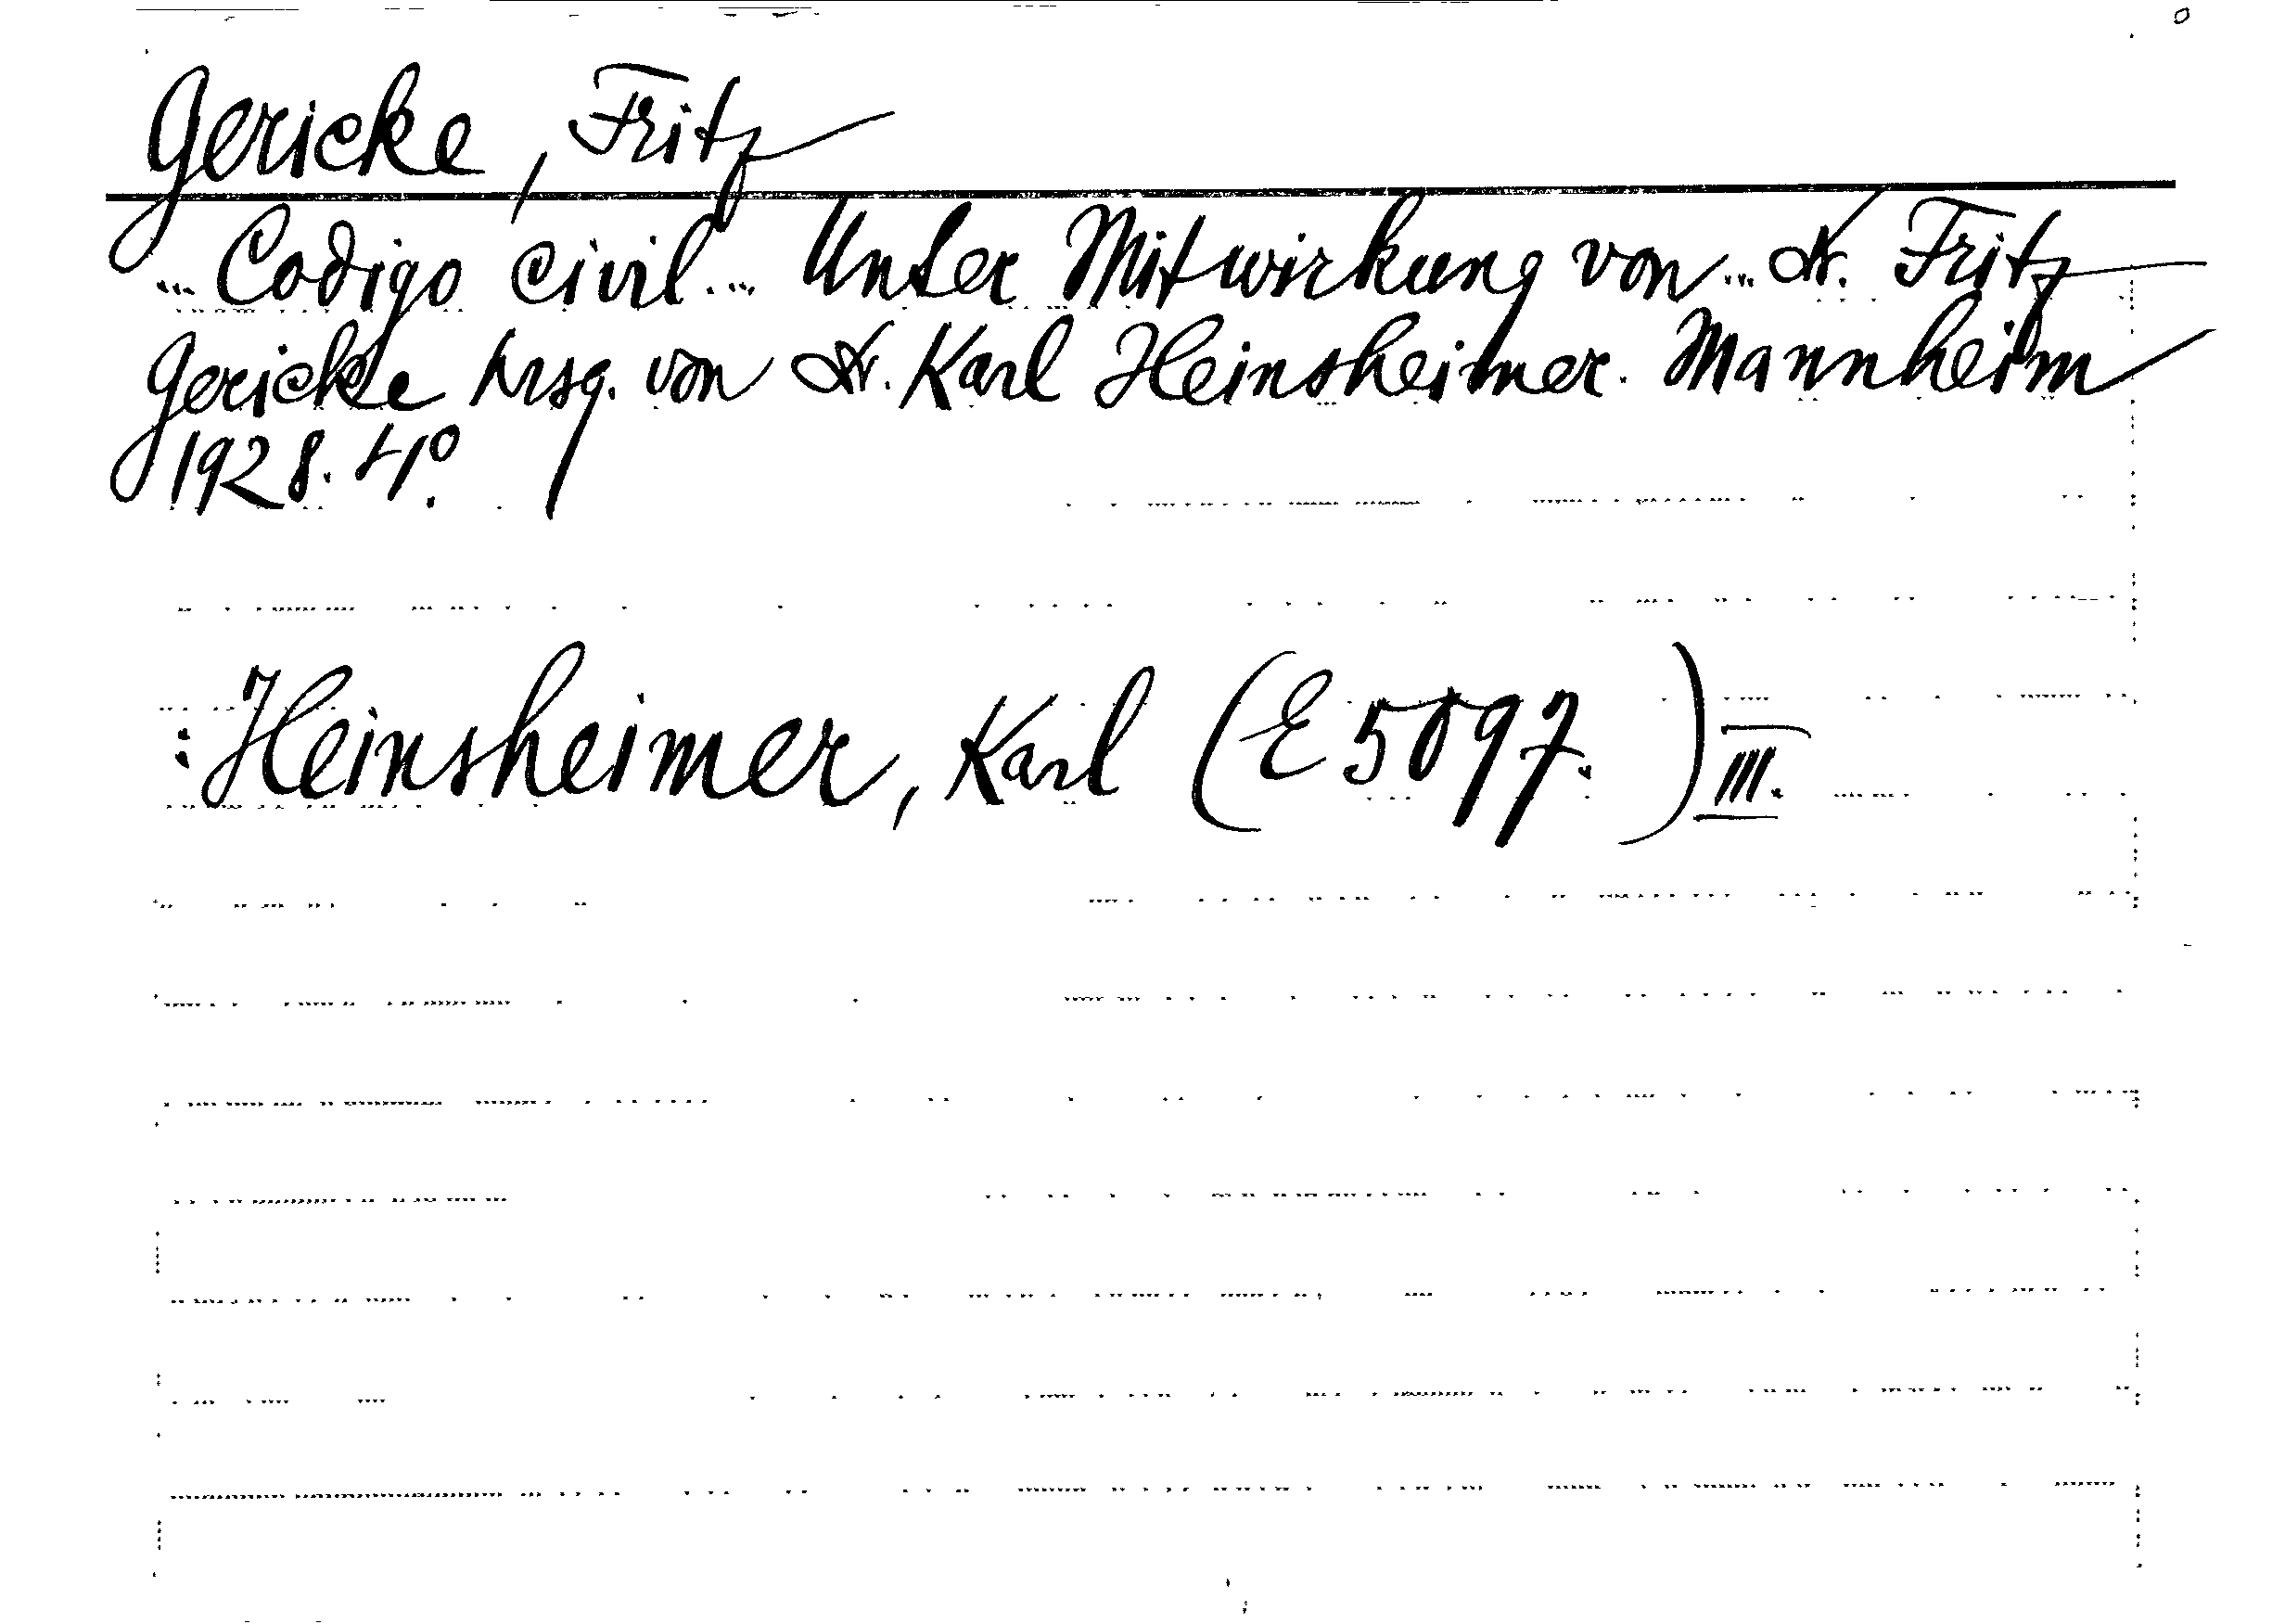 Gericke, Fritz
... Codigo civil ... Unter Mitwirkung von ... Dr. Fritz
Gericke hrsg. von Dr. Karl Heinsheimer. Mannheim
1928. 4°.
: Heinsheimer, Karl (E 5097.) III.